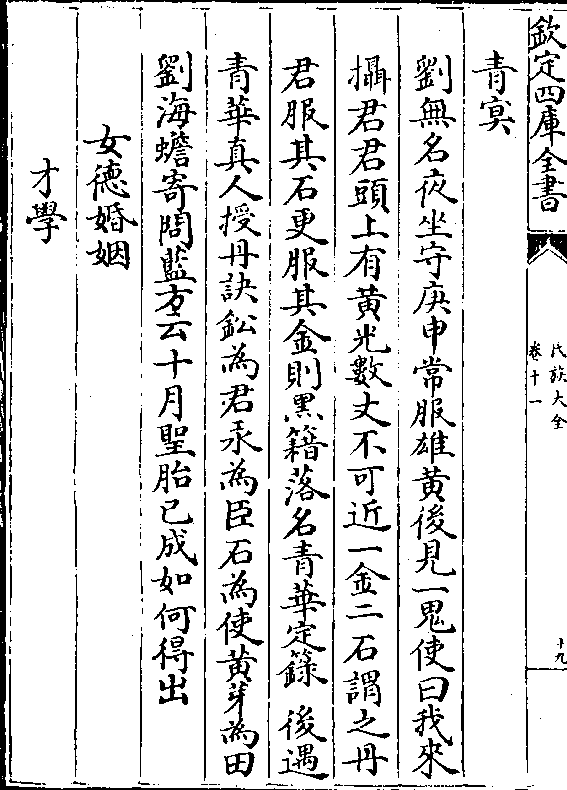 欽定四庫全書
氏族大全
卷十一
十九
青㝠
劉無名夜坐守庚申常服雄黃後見一鬼使曰我來
攝君君頭上有黃光數丈不可近一金二石謂之丹
君服其石更服其金則黑籍落名青華定籙 後遇
青華真人授丹訣鈆為君汞為臣石為使黃芽為田
劉海蟾寄問藍方云十月聖胎已成如何得出
女德婚姻
才學